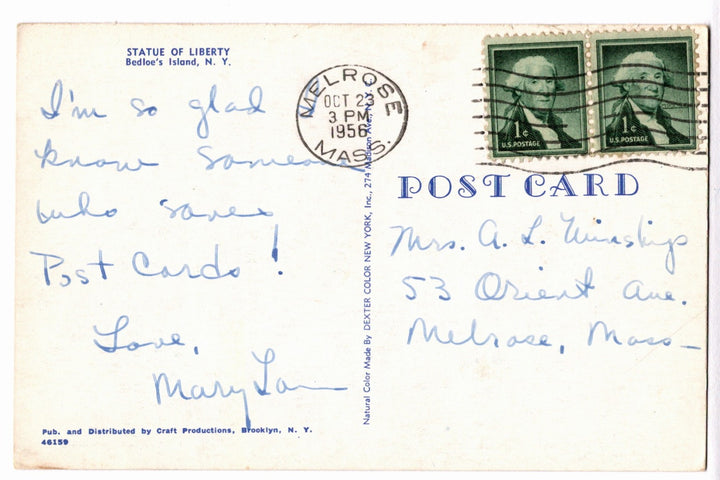 STATUE OF LIBERTY
Bedloe's Island, N. Y.
I'm so glad
know someone
who saves
Post Cards!
Love,
Mary Lou
Pub. and Distributed by Craft Productions, Brooklyn, N. Y.
46159
MELROSE
OCT 23
3 PM
1956
MASS.
Natural Color Made By DEXTER COLOR NEW YORK, Inc., 274 Madison Ave., N.Y.
1¢
U.S. POSTAGE
1¢
U.S. POSTAGE
POST CARD
Mrs. A. L.
53 Orient Ave.
Melrose, Mass